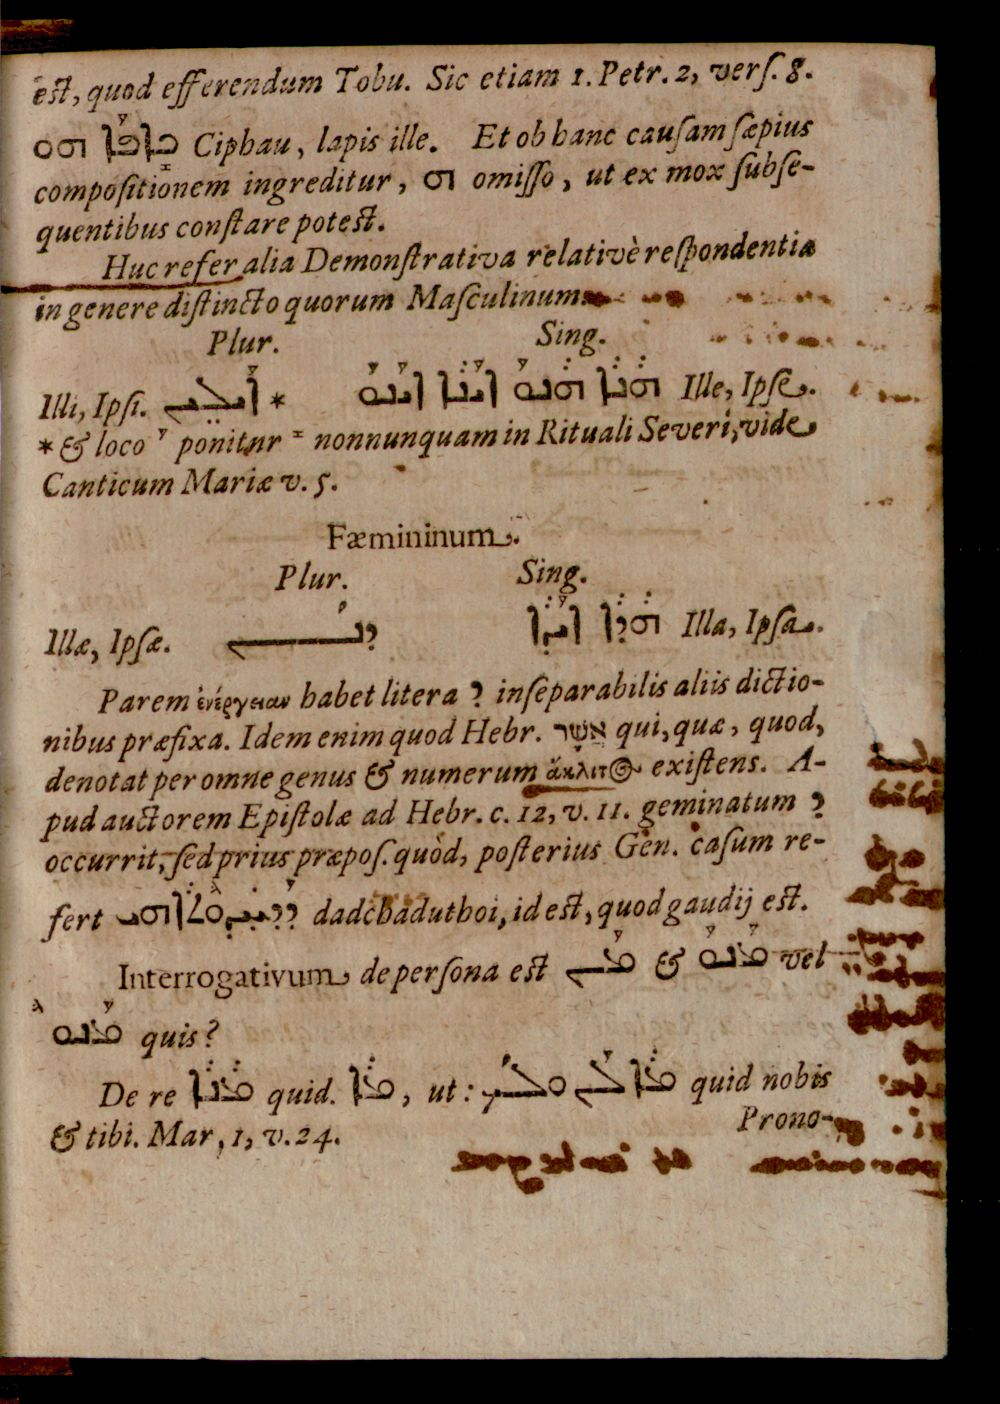 est, quod efferendum Tobu. Sic etiam 1. Petr. 2, vers. 8.
ܟܐܦܐ ܗܘ Ciphau, lapis ille. Et ob hanc causam sæpius
compositionem ingreditur, ܗ omisso, ut ex mox subse-
quentibus constare potest.
Huc refer alia Demonstrativa relativè respondentia
in genere distincto quorum Masculinum
Plur. Sing.
Illi, Ipsi. ܐܝܠܝܢ * ܗܢܐ ܗܢܘ ܐܝܢܐ ܐܝܢܘ Ille, Ipse.
* & loco ponitur nonnunquam in Rituali Severi, vide
Canticum Mariæ v. 5.
Fæmininum.
Plur. Sing.
Illæ, Ipsæ. ܗܕܐ ܐܝܕܐ Illa, Ipsa.
Parem ἐνέργειαν habet litera ܕ inseparabilis aliis dictio-
nibus præfixa. Idem enim quod Hebr. אֲשֶׁר qui, quæ, quod,
denotat per omne genus & numerum ἄκλιτος existens. A-
pud auctorem Epistolæ ad Hebr. c. 12, v. 11. geminatum ܕ
occurrit, sed prius præpos. quòd, posterius Gen. casum re-
fert ܕܕܚܕܘܬܐ ܗܝ dadchaduthoi, id est, quod gaudij est.
Interrogativum de persona est ܡܢ & ܡܢܘ vel
ܡܢܘ quis?
De re ܡܢܐ quid. ܡܐ, ut: ܡܐ ܠܢ ܘܠܟ quid nobis
& tibi. Mar, 1, v. 24.
Prono-